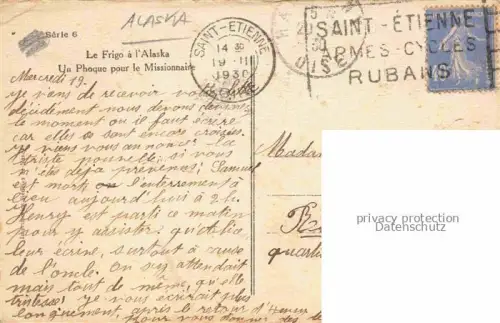 ALASKA
Série 6
Le Frigo à l'Alaska
Un Phoque pour le Missionnaire
SAINT-ETIENNE
14 30
19 - II
1930
LOIRE
SAINT-ÉTIENNE
ARMES-CYCLES
RUBANS
Mercredi 19.
Je viens de recevoir
décidément nous devons deviner
le moment où il faut écrire
car elles se sont encore croisées
Je vais vous annoncer la
triste nouvelle, si vous
n'êtes déjà prévenus; Samuel
est mort l'enterrement à
lieu aujourd'hui à 2h.
Henry est parti ce matin
pour y assister;
leur écrire, surtout à cause
de l'oncle. On s'y attendait
mais tout de même, qu'elle
tristesse! Je vous écrirai plus
longuement, après le retour d'Henry
pour vous donner des
Madam
quartie
privacy protection
Datenschutz